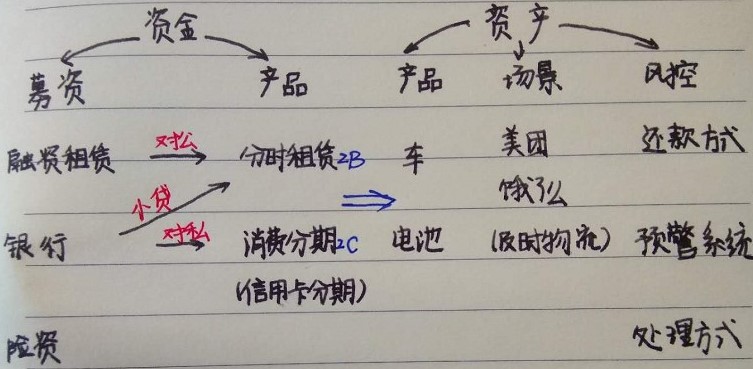 资金 资产
募资 产品 产品 场景 风控
融资租赁 对公 分时租赁2B 车 美团 还款方式
小贷 饿了么
银行 对私 消费分期2C 电池 (及时物流) 预警系统
(信用卡分期)
险资 处理方式